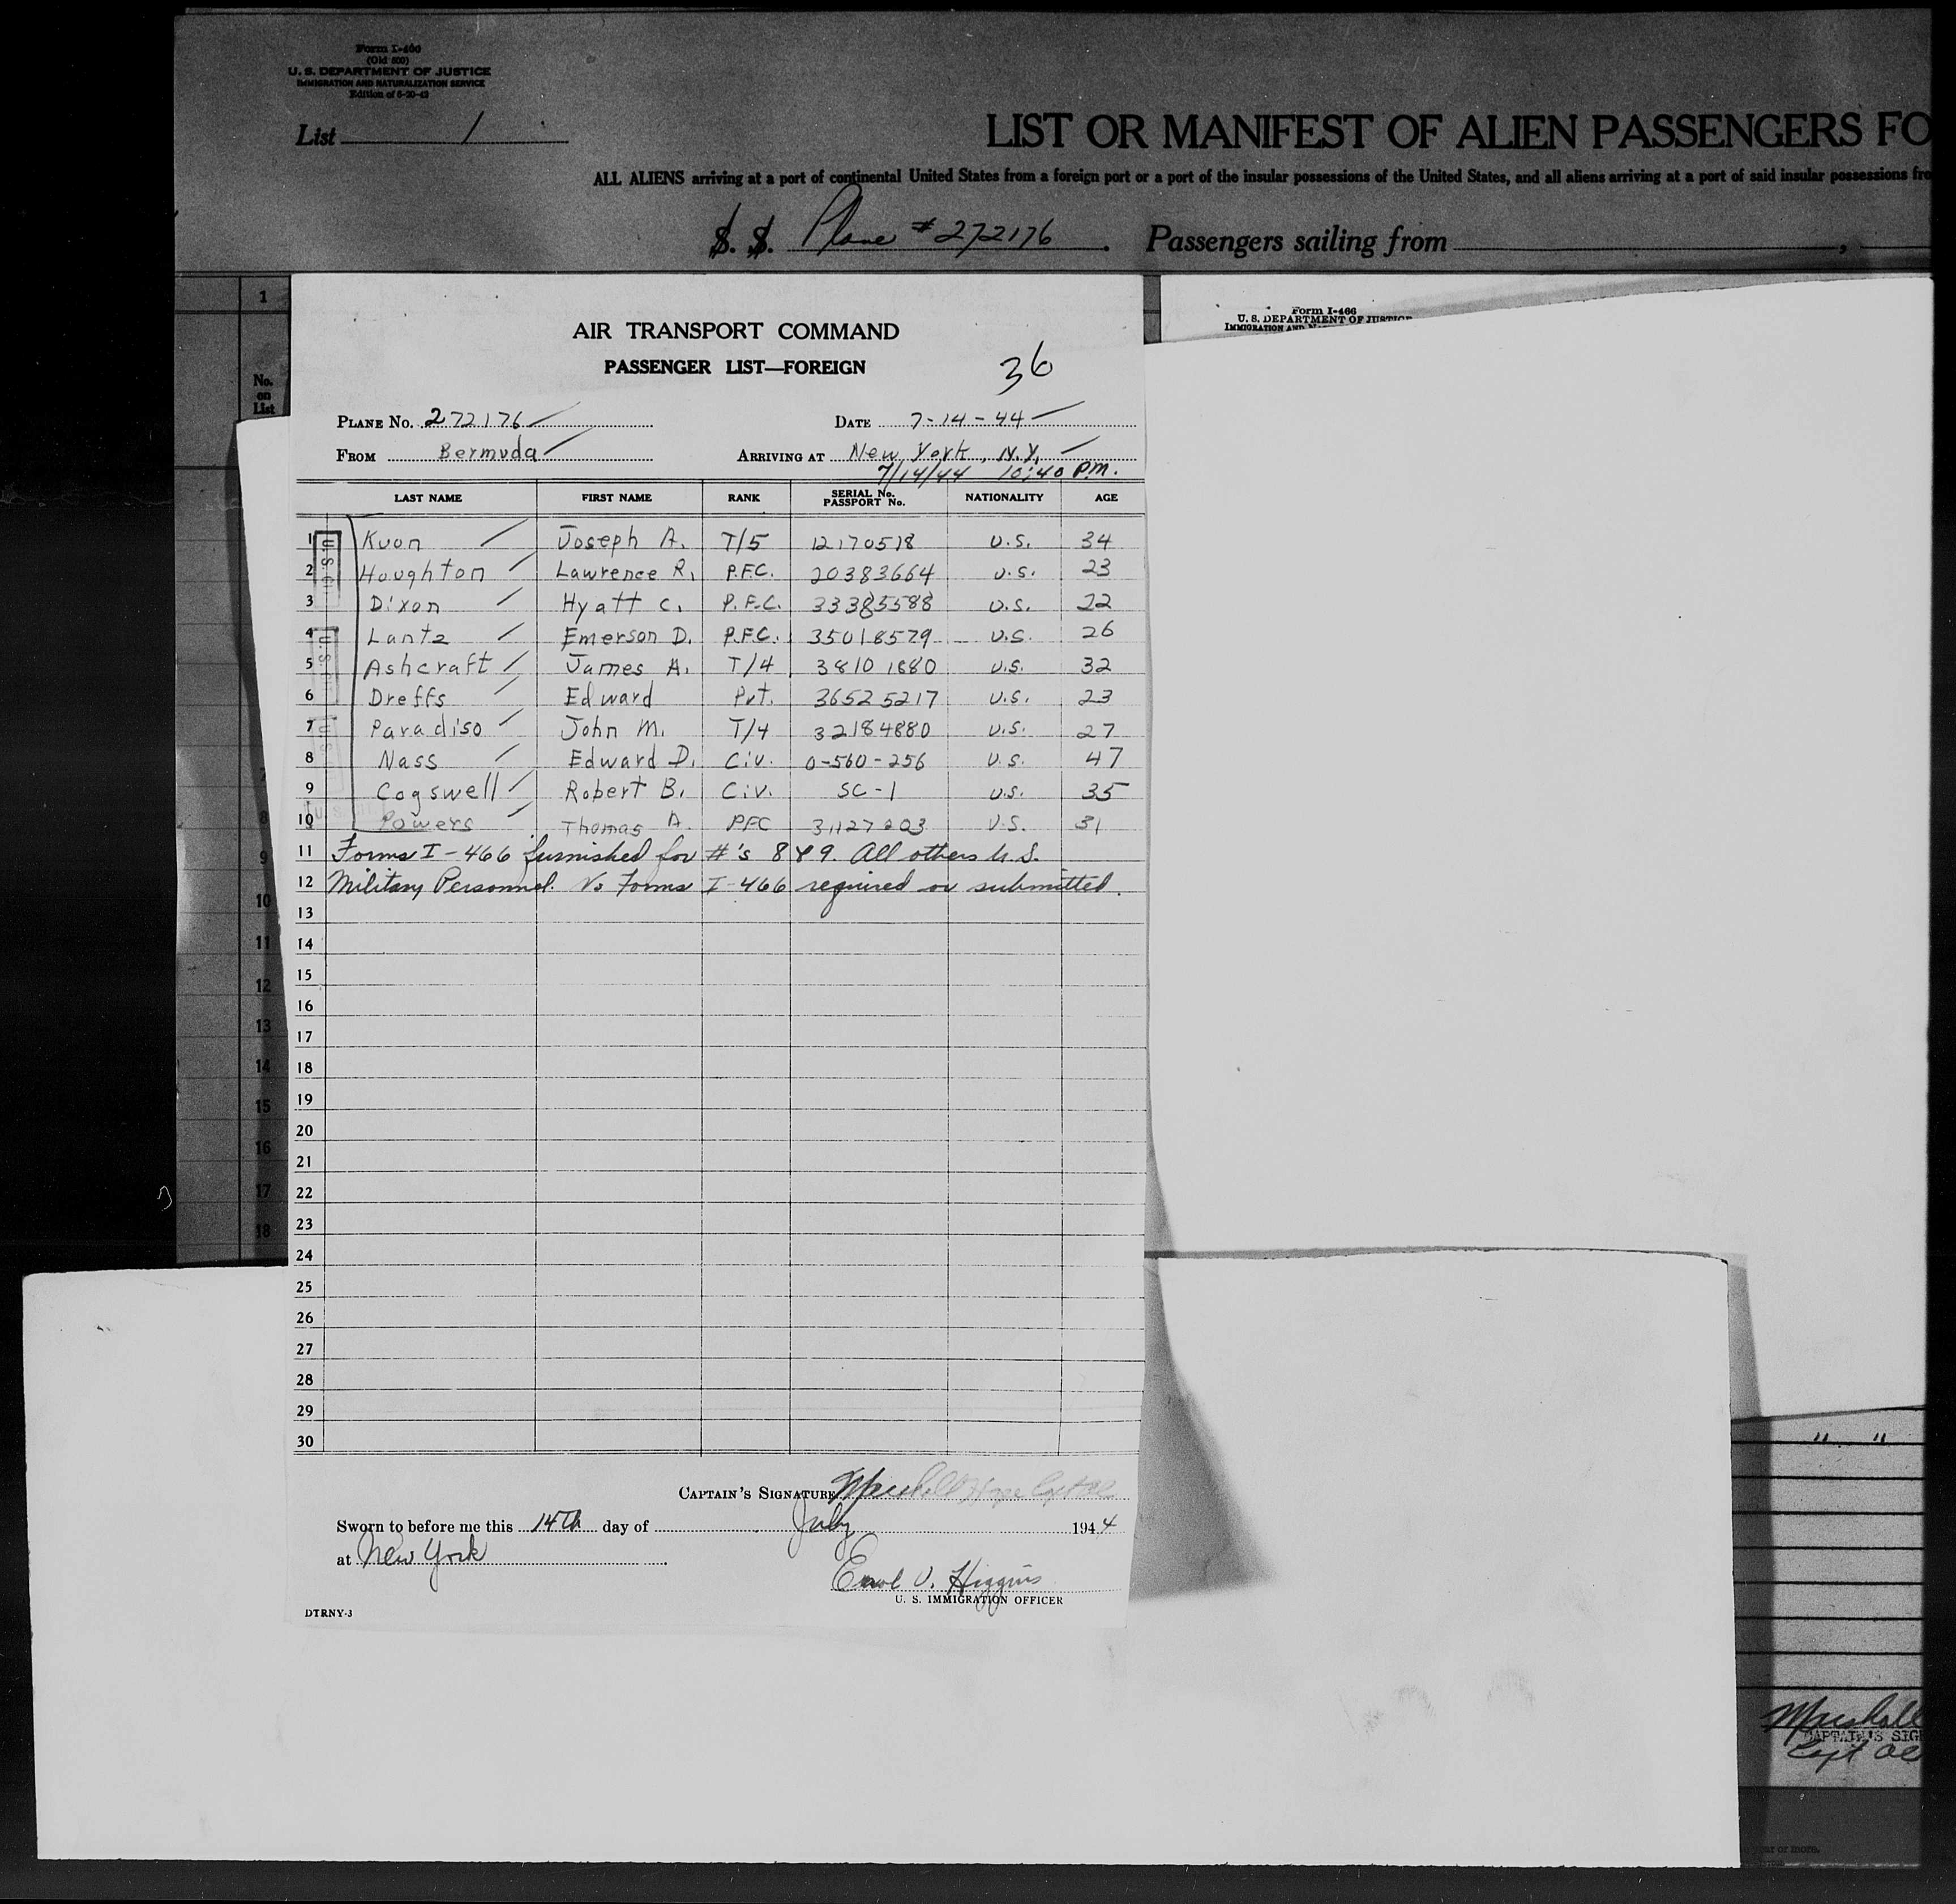 Form I-466
(Old 500)
U. S. DEPARTMENT OF JUSTICE
IMMIGRATION AND NATURALIZATION SERVICE
List 1
LIST OR MANIFEST OF ALIEN PASSENGERS FO
ALL ALIENS arriving at a port of continental United States from a foreign port or a port of the insular possessions of the United States, and all aliens arriving at a port of said insular possessions fro
S. S. Plane # 272176. Passengers sailing from
Form I-466
U. S. DEPARTMENT OF JUSTICE
IMMIGRATION AND
1
No. on List
AIR TRANSPORT COMMAND
PASSENGER LIST—FOREIGN
36
PLANE No. 272176 DATE 7-14-44
FROM Bermuda ARRIVING AT New York, N.Y.
7/14/44 10:40 P.M.
LAST NAME FIRST NAME RANK SERIAL No. PASSPORT No. NATIONALITY AGE
1 Kuon Joseph A. T/5 12170518 U.S. 34
2 Houghton Lawrence R. P.F.C. 20383664 U.S. 23
3 Dixon Hyatt C. P.F.C. 33385588 U.S. 22
4 Lantz Emerson D. P.F.C. 35018579 U.S. 26
5 Ashcraft James A. T/4 38101880 U.S. 32
6 Dreffs Edward Pvt. 36525217 U.S. 23
7 Paradiso John M. T/4 32184880 U.S. 27
8 Nass Edward D. Civ. 0-560-256 U.S. 47
9 Cogswell Robert B. Civ. SC-1 U.S. 35
10 Powers Thomas A. PFC 31127203 U.S. 31
11 Forms I-466 furnished for #'s 8 & 9. All others U.S.
12 Military Personnel. No Forms I-466 required or submitted.
13
14
15
16
17
18
19
20
21
22
23
24
25
26
27
28
29
30
CAPTAIN'S SIGNATURE Marshall Hope Capt AC
Sworn to before me this 14th day of July 1944
at New York
Higgins
U. S. IMMIGRATION OFFICER
DTRNY-3
" "
Marshall
CAPTAIN'S SIG
Capt AC
or more.